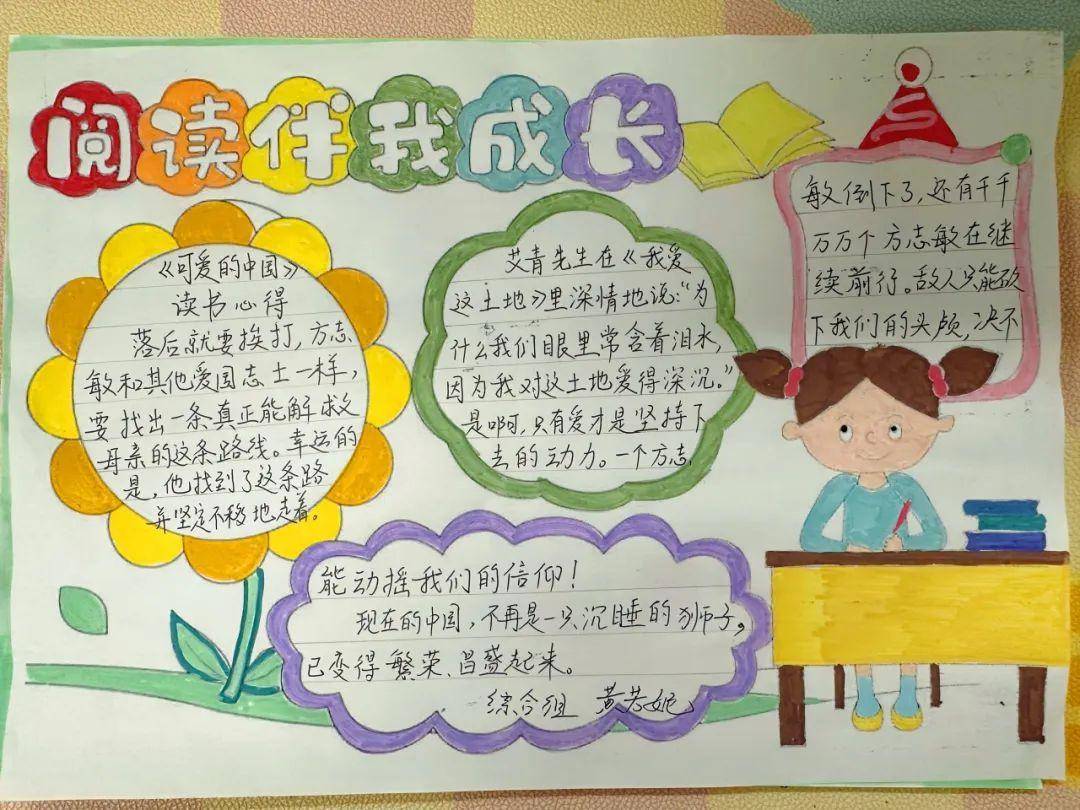 阅读伴我成长
《可爱的中国》
读书心得
落后就要挨打,方志
敏和其他爱国志士一样,
要找出一条真正能解救
母亲的这条路线。幸运的
是,他找到了这条路
并坚定不移地走着。
艾青先生在《我爱
这土地》里深情地说:“为
什么我们眼里常含着泪水,
因为我对这土地爱得深沉。”
是啊,只有爱才是坚持下
去的动力。一个方志
敏倒下了,还有千千
万万个方志敏在继
续前行。敌人只能砍
下我们的头颅,决不
能动摇我们的信仰!
现在的中国,不再是一只沉睡的狮子,
已变得繁荣、昌盛起来。
综合组 黄若妮